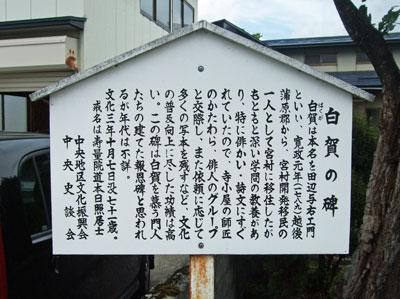 白賀の碑
はくが
白賀は本名を田辺与右ェ門
といい、寛政元年(一七八九)越後
蒲原郡から、宮村開発移民の
一人として宮村に移住したが
もともと深い学問の教養があ
り、特に俳かい、詩文にすぐ
れていたので、寺小屋の師匠
のかたわら、俳人のグループ
と交際し、また依頼に応じて
多くの写本を残すなど、文化
の普及向上に尽した功績は高
い。この碑は白賀を慕う門人
たちの建てた報恩碑と思われ
るが年代は不詳。
文化三年十月七日没七十一歳。
戒名は寿量院道本日照居士
中央地区文化振興会
中央史談会